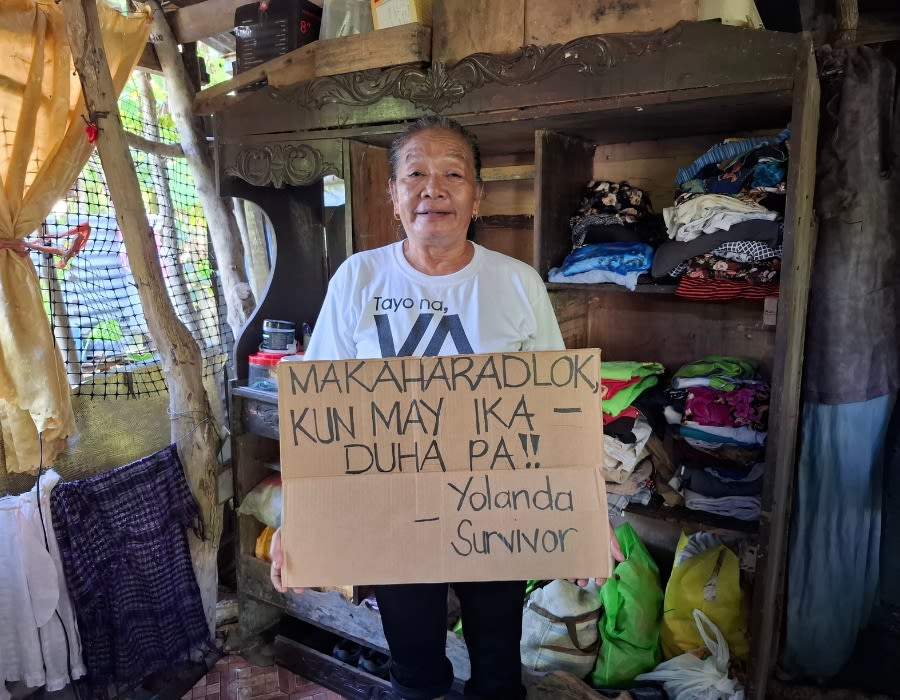 Tayo na,
VA
MAKAHARADLOK,
KUN MAY IKA —
DUHA PA!!
— Yolanda
Survivor